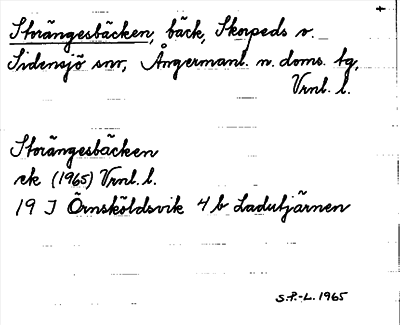 Storängesbäcken, bäck, Skorpeds o.
Sidensjö snr, Ångermanl. n. doms. tg,
Vrnl. l.
Storängesbäcken
ek (1965) Vrnl. l.
19 J Örnsköldsvik 4 b Ladutjärnen
S.P.-L. 1965